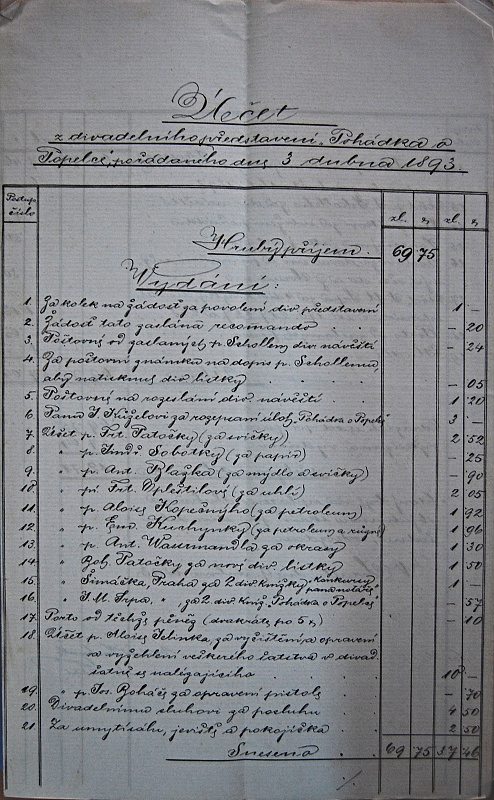 Účet
z divadelního představení „Pohádka o
Popelce“, pořádaného dne 3 dubna 1893.
Postup. číslo zl. zl.
Hrubý příjem. 69 75
Vydání:
1. Za kolek na žádost za povolení div. představení 1 –
2. Žádost tato zaslána recomando – 20
3. Poštovné od zaslaných p. Schollem div. návěští – 24
4. Za poštovní známku na dopis p. Schollemu
aby natisknul div. lístky – 05
5. Poštovné na rozeslání div. návěští 1 20
6 Panu J. Kuželovi za rozepsaní úloh „Pohádka o Popelce“ 3 –
7. Účet p. Frt. Patočky (za svíčky) 2 52
8. " p. Jindř. Sobotky (za papír) – 25
9. " p. Ant. Blažka (za mýdlo a svíčky) – 90
10 " pí Frt. (za uhlí) 2 05
11. " p. Alois Kopečného (za petroleum) 1 92
12. " p. Em. Kuchynky (za petroleum a různé) 1 96
13. " p. Ant. Wassmandla za okrasy 1 30
14. " Boh. Patočky za nové div. lístky 1 50
15. " Šimáčka, Praha za 2 div. knížky „Konkursy pana notáře“ 1 –
16. " J. M. Srpa, " , za 2 div. kníž. Pohádka o Popelce – 57
17. Porto od těchže peněz (dvakráte po 5 k.) – 10
18. Účet p. Alois Jelinka, za vyčištění a opravení
a vyžehlení veškerého šatstva v divad.
šatně se nalézajícího 10 –
19. " p. Jos. Boháč za opravení pistolí – 70
20. Divadelnímu sluhovi za posluhu 4 50
21. Za umytí sálu, jeviště a pokojíčka 2 50
Snešeno 69 75 37 46
./.